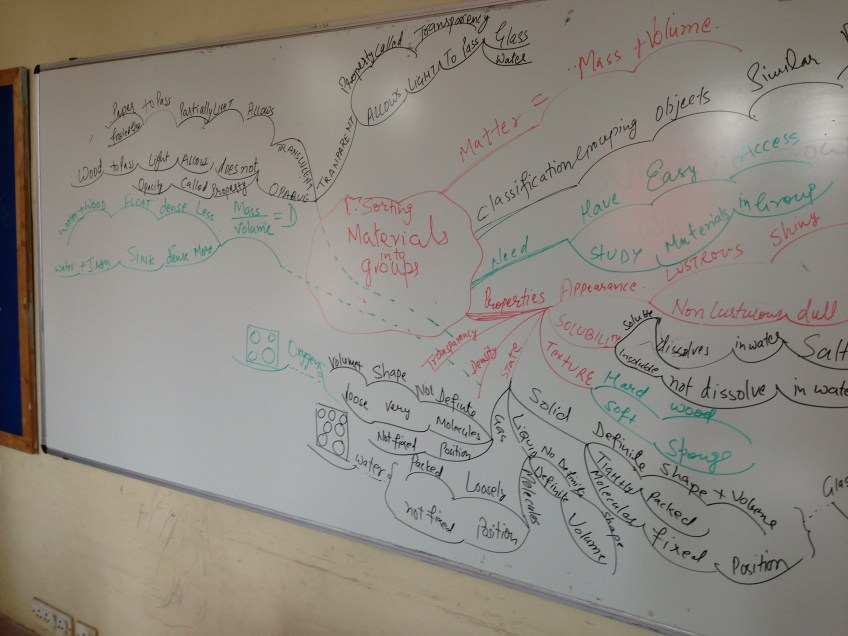 1. Sorting
Materials
into
groups
Matter = Mass + Volume.
Classification grouping objects Similar
Need
Have Easy Access
STUDY Materials in Group
Properties
Appearance.
LUSTROUS Shiny
Non Lustulous dull
SOLUBILITY
Soluble dissolves in water Salt
insoluble not dissolve in wate
TEXTURE
Hard wood
Soft Sponge
State
Solid
Definite Shape + Volume
Tightly Packed
Molecules fixed Position
Glass
Liquid
No Definite Shape
Definite Volume
Molecules
Loosely Packed
not fixed Position
water
Gas
Volume + Shape Not Definite
loose very Molecules
Not fixed Position
Oxygen
Density
Mass
Volume = D
water + wood FLOAT dense Less
water + Iron SINK Dense More
Transparency
TRANPARENT
Property called Transparency
ALLOWS LIGHT To Pass Glass
Water
TRANSULENT
Allows Partially LIGHT to Pass Paper
OPAQUE
does not Allow Light to Pass Wood
Called Property Opacity